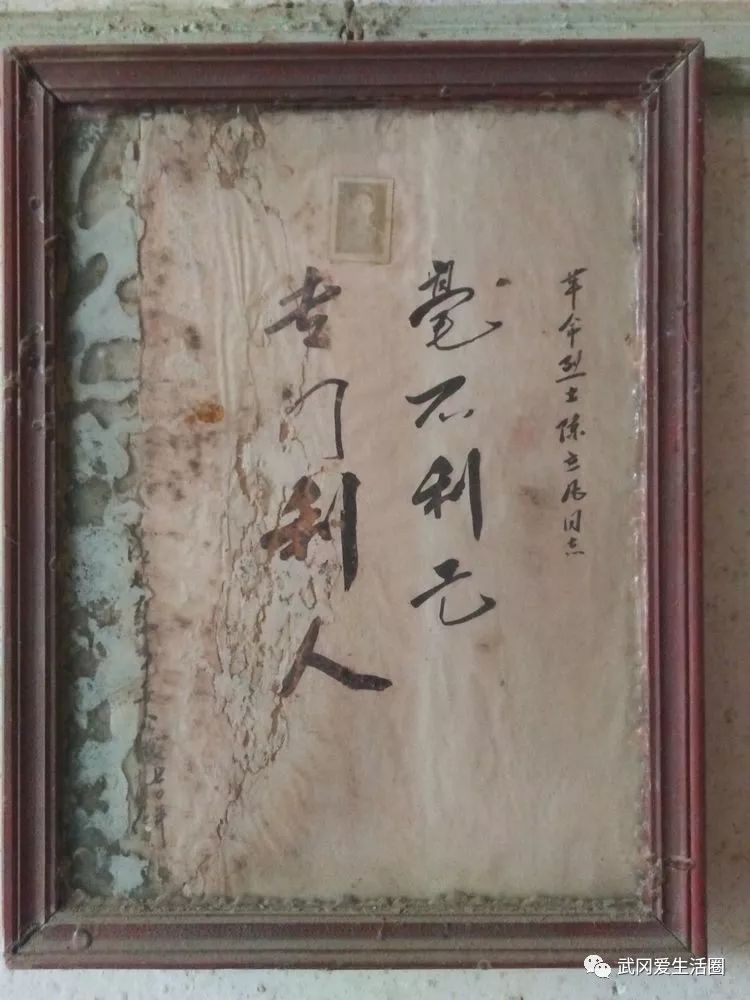 革命烈士陈立风同志
毫不利己
专门利人
武冈爱生活圈